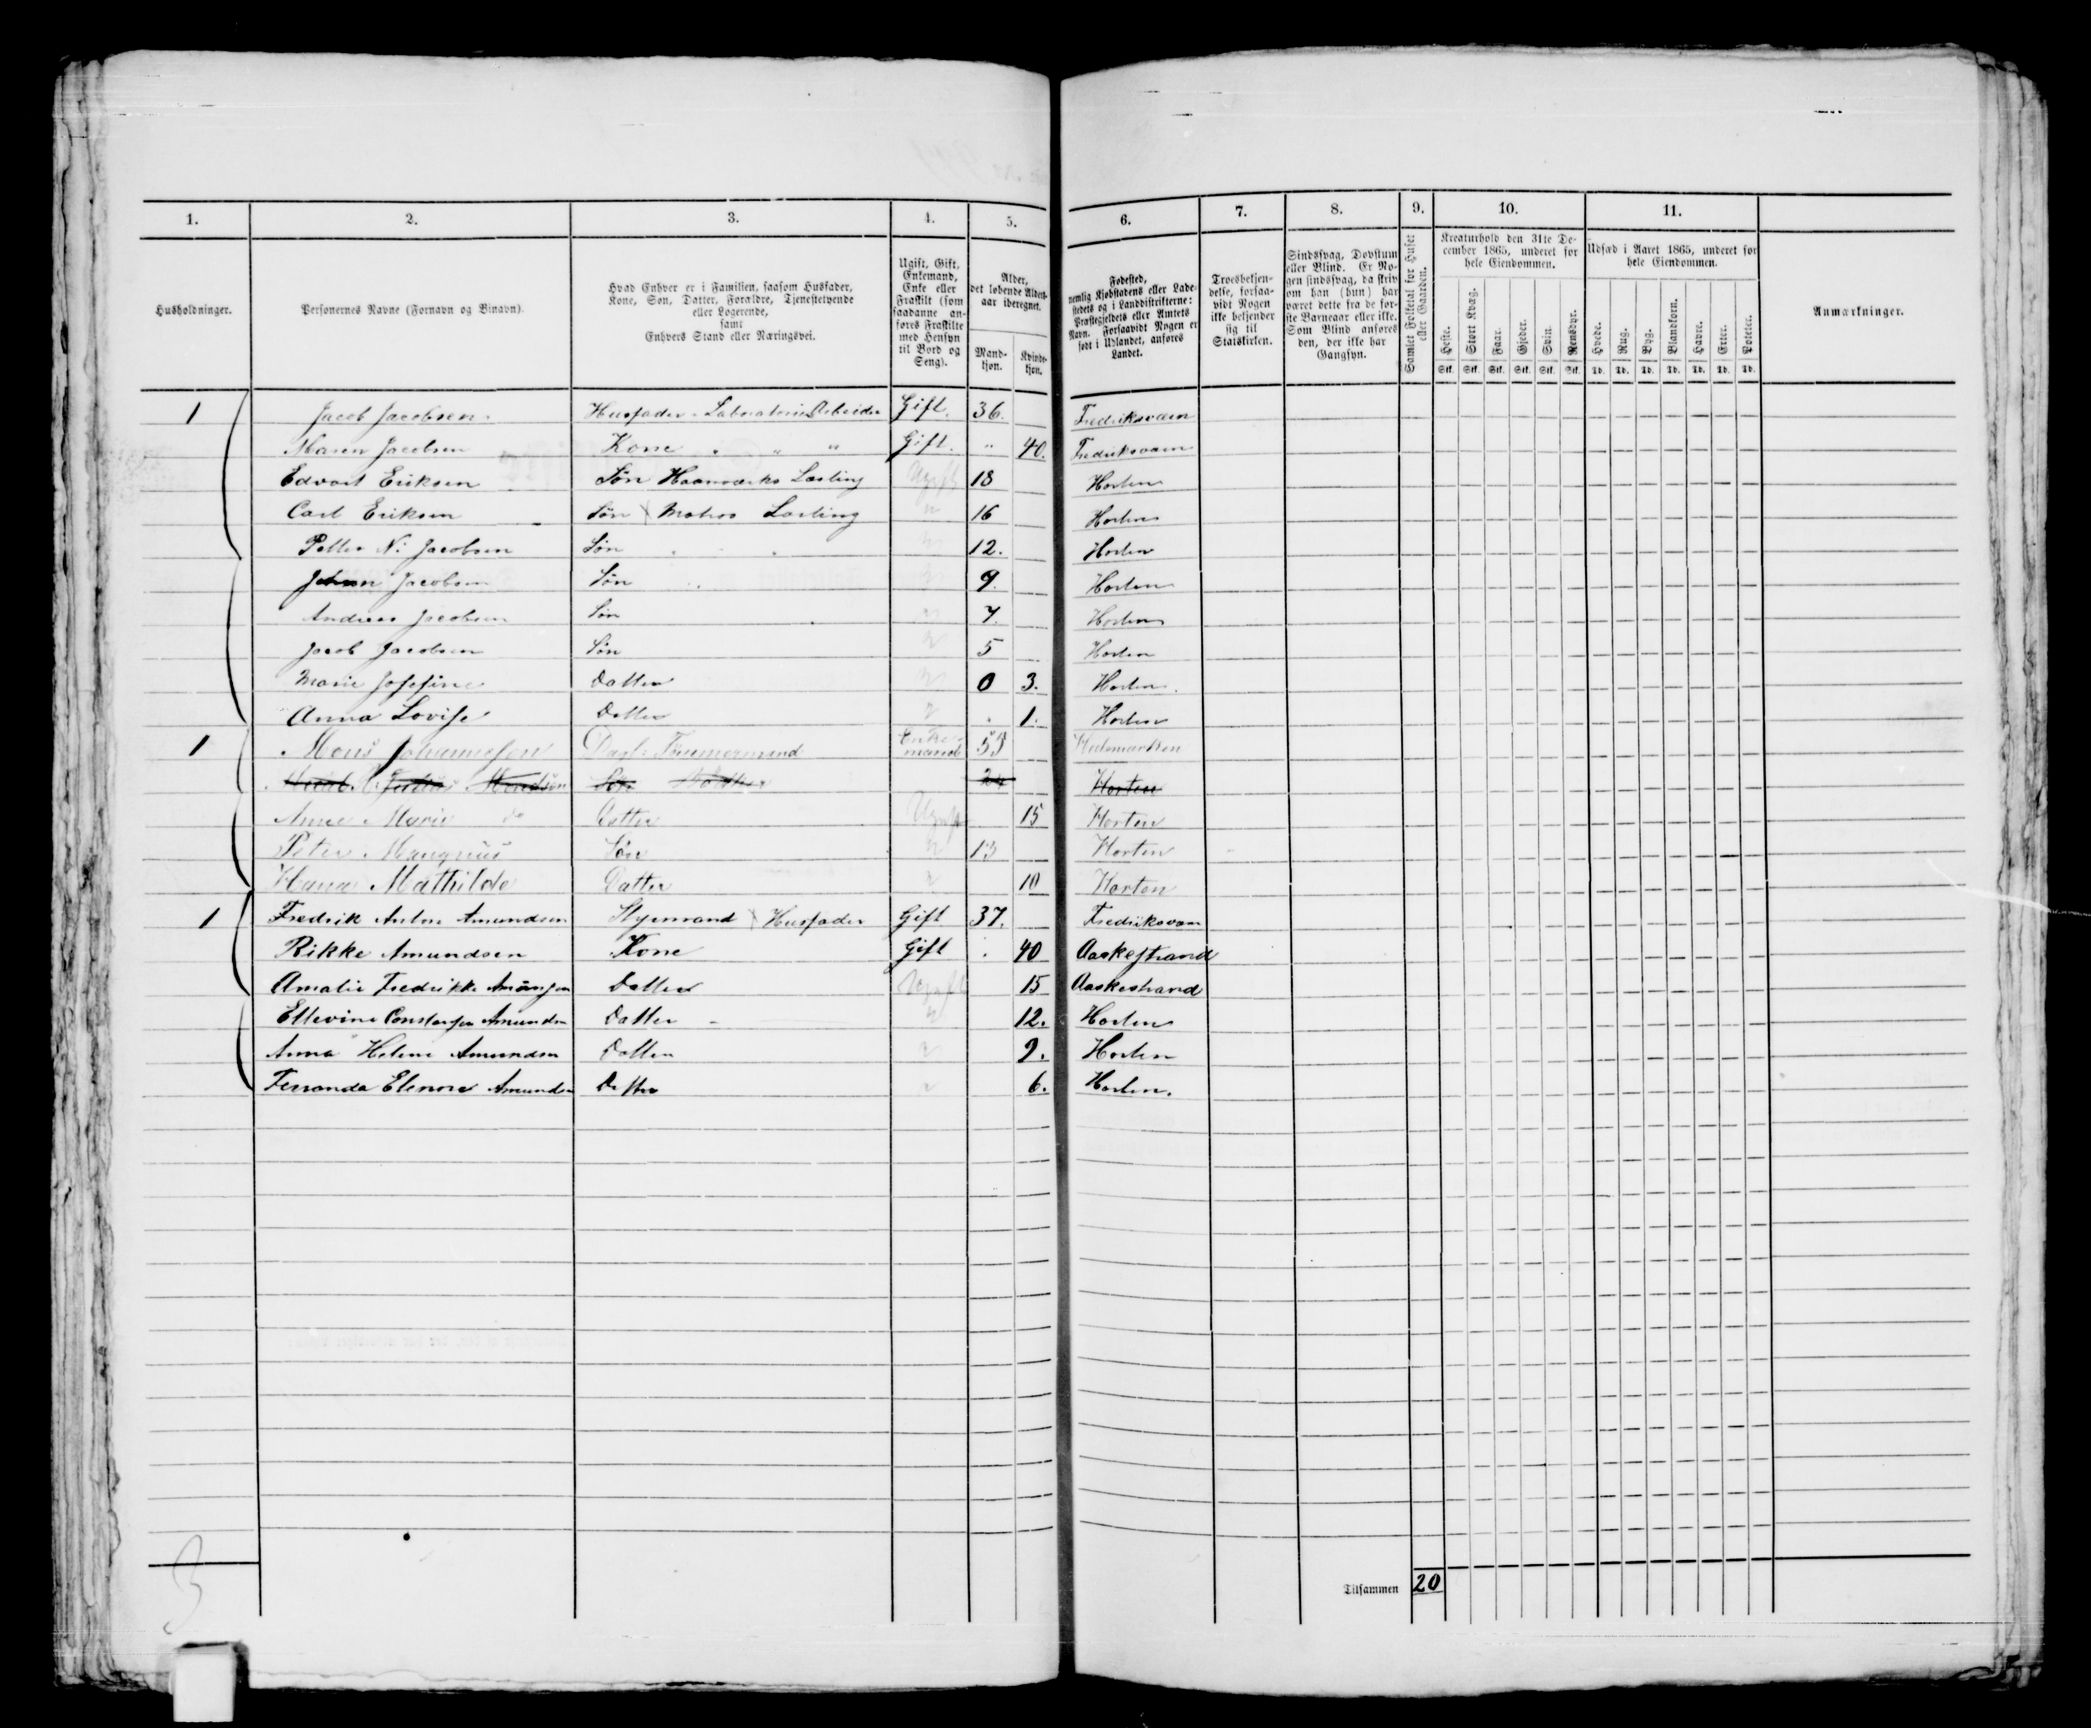 1. 2. 3. 4. 5. 6. 7. 8. 9. 10. 11.
Husholdninger.
Personernes Navne (Fornavn og Binavn).
Hvad Enhver er i Familien, saasom Husfader,
Kone, Søn, Datter, Forældre, Tjenestetyende
eller Logerende,
samt
Enhvers Stand eller Næringsvei.
Ugift, Gift,
Enkemand,
Enke eller
Fraskilt (som
saadanne an-
føres Fraskilte
med Hensyn
til Bord og
Seng).
Alder,
det løbende Alders-
aar iberegnet.
Mand-
kjøn.
Kvinde-
kjøn.
Fødested,
nemlig Kjøbstadens eller Lade-
stedets og i Landdistrikterne:
Præstegjeldets eller Amtets
Navn. Forsaavidt Nogen er
født i Udlandet, anføres
Landet.
Troesbekjen-
delse, forsaa-
vidt Nogen
ikke bekjender
sig til
Statskirken.
Sindssvag, Døvstum
eller Blind. Er No-
gen sindssvag, da skriv
om han (hun) har
været dette fra de før-
ste Barneaar eller ikke.
Som Blind anføres
den, der ikke har
Gangsyn.
Samlet Folketal for Huset
eller Gaarden.
Kreaturhold den 31te De-
cember 1865, underet for
hele Eiendommen.
Heste. Stort Kvæg. Faar. Gjeder. Svin. Rensdyr.
Stk. Stk. Stk. Stk. Stk. Stk.
Udsæd i Aaret 1865, underet for
hele Eiendommen.
Hvede. Rug. Byg. Blandkorn. Havre. Erter. Poteter.
Td. Td. Td. Td. Td. Td. Td.
Anmærkninger.
1 Jacob Jacobsen Husfader Laboratorie Arbeider Gift. 36. Fredriksværn
Maren Jacobsen Kone " " " Gift. " 40. Fredriksværn
Edvart Eriksen Søn Haanværks Lærling Ugift 18 Horten
Carl Eriksen Søn Matros Lærling " 16 Horten
Petter N: Jacobsen Søn " 12. Horten
Johan Jacobsen Søn " 9. Horten
Andreas Jacobsen Søn " 7. Horten
Jacob Jacobsen Søn " 5 Horten
Marie Josefine Datter " 0 3. Horten.
Anna Lovise Datter " 1. Horten
1 Mons Johannesen Tømmermand Enke-
mand 53 Hedemarken
Søn 24 Horten
Anne Marie do Datter Ugift 15 Horten
Peter Mangnus Søn " 13 Horten
Hana Mathilde Datter " 10 Horten
1 Fredrik Anton Amundsen Styrmand Husfader Gift 37. Fredriksværn
Rikke Amundsen Kone Gift . 40 Aaskestrand
Amalie Fredrikke Amunsen Datter Ugift 15 Aaskestrand
Ellevine Constanse Amundsn Datter " 12. Horten
Anna Helene Amundsn Datter " 9. Horten
Fernanda Elenore Amundsn Datter " 6. Horten.
3
Tilsammen 20